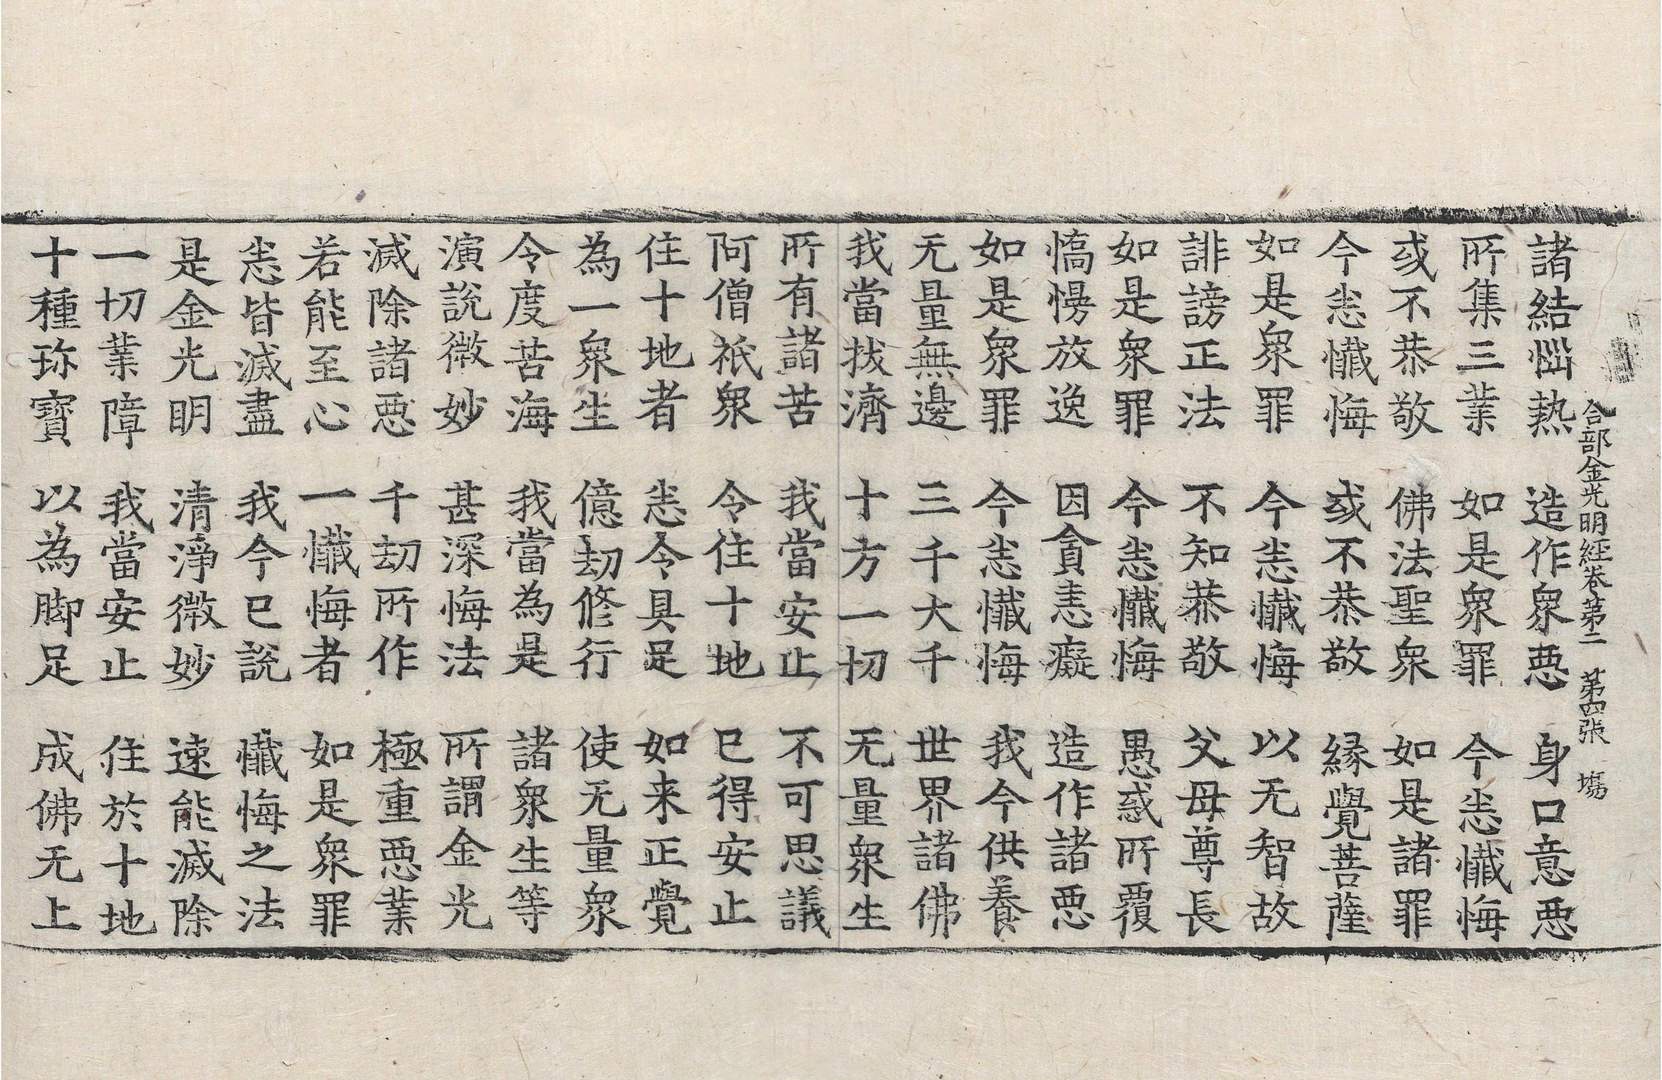 合部金光明經卷第二 第四張 塲
諸結惱熱 造作衆惡 身口意惡
所集三業 如是衆罪 今悉懺悔
或不恭敬 佛法聖衆 如是諸罪
今悉懺悔 或不恭敬 緣覺菩薩
如是衆罪 今悉懺悔 以无智故
誹謗正法 不知恭敬 父母尊長
如是衆罪 今悉懺悔 愚惑所覆
憍慢放逸 因貪恚癡 造作諸惡
如是衆罪 今悉懺悔 我今供養
无量無邊 三千大千 世界諸佛
我當拔濟 十方一切 无量衆生
所有諸苦 我當安止 不可思議
阿僧祇衆 令住十地 已得安止
住十地者 悉令具足 如来正覺
為一衆生 億劫修行 使无量衆
令度苦海 我當為是 諸衆生等
演說微妙 甚深悔法 所謂金光
滅除諸惡 千劫所作 極重惡業
若能至心 一懺悔者 如是衆罪
悉皆滅盡 我今已說 懺悔之法
是金光明 清淨微妙 速能滅除
一切業障 我當安止 住於十地
十種珎寶 以為脚足 成佛无上